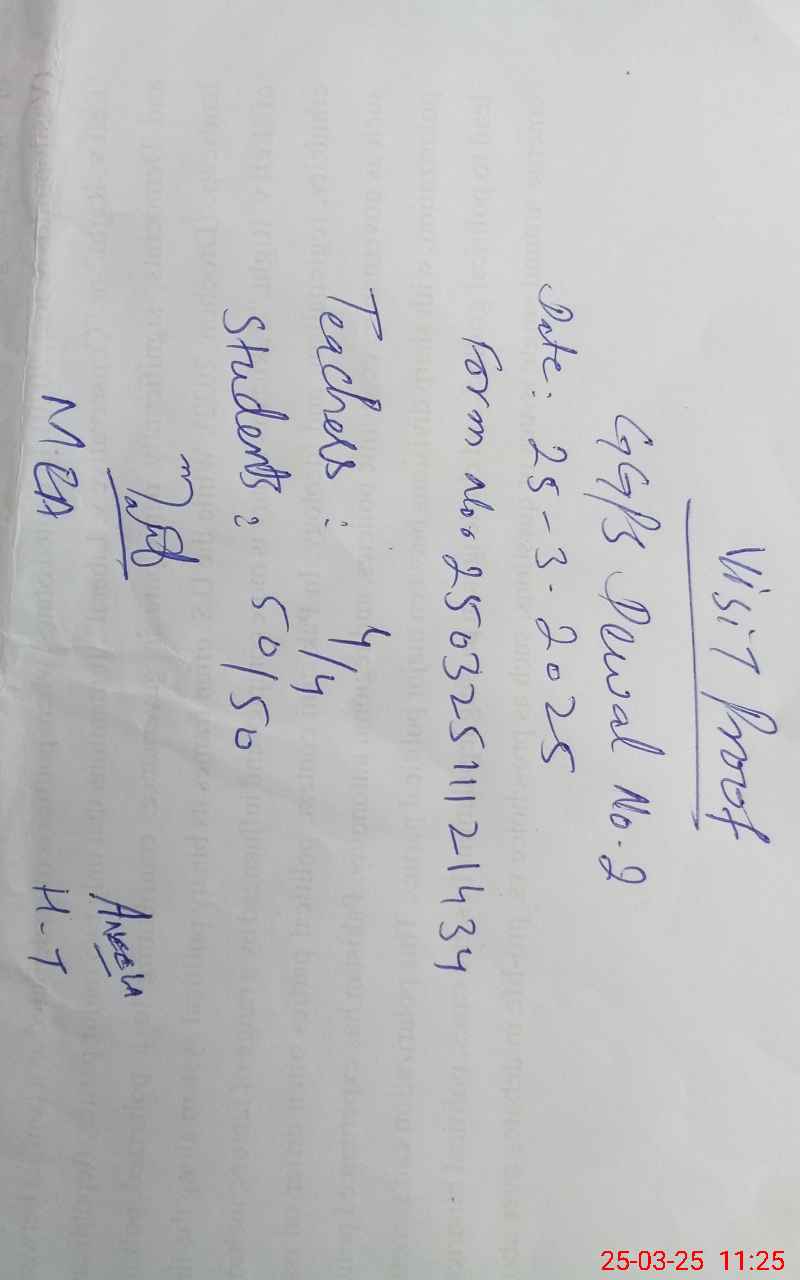 Visit Proof
GGPS Dewal No. 2
Date: 25-3-2025
Form No. 25032511121434
Teachers: 4/4
Students: 50/50
M.EA
H-T
25-03-25 11:25